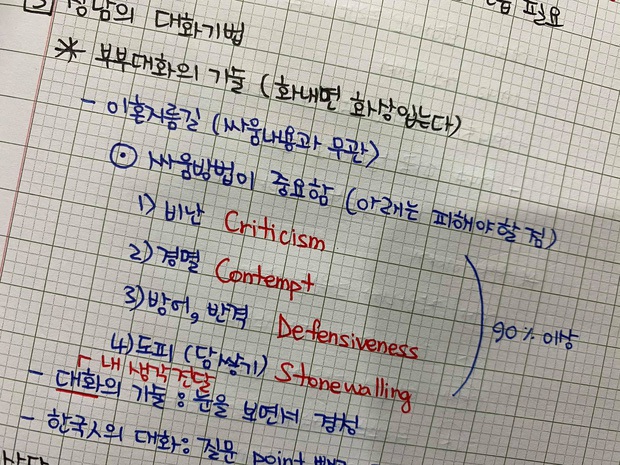 필요
의 대화기법
* 부부대화의 기술 (화내면 화상입는다)
- 이혼지름길 (싸움내용과 무관)
⊙ 싸움방법이 중요함 (아래는 피해야할 점)
1) 비난 Criticism
2) 경멸 Contempt
3) 방어, 반격 Defensiveness
4) 도피 (담쌓기) Stonewalling
90% 이상
내 생각 전달
- 대화의 기술 : 눈을 보면서 경청
- 한국人의 대화: 질문 point